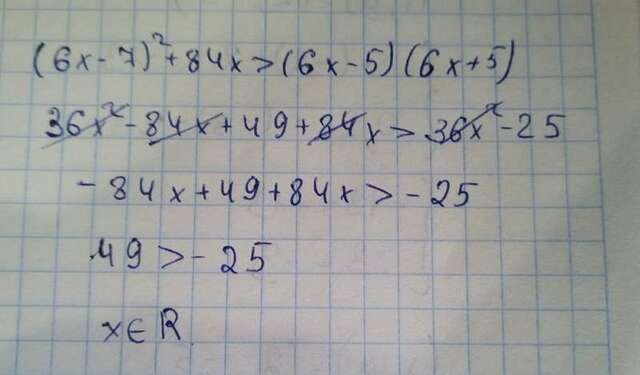 (6x-7)²+84x>(6x-5)(6x+5)
36x²-84x+49+84x>36x²-25
-84x+49+84x>-25
49>-25
x∈R